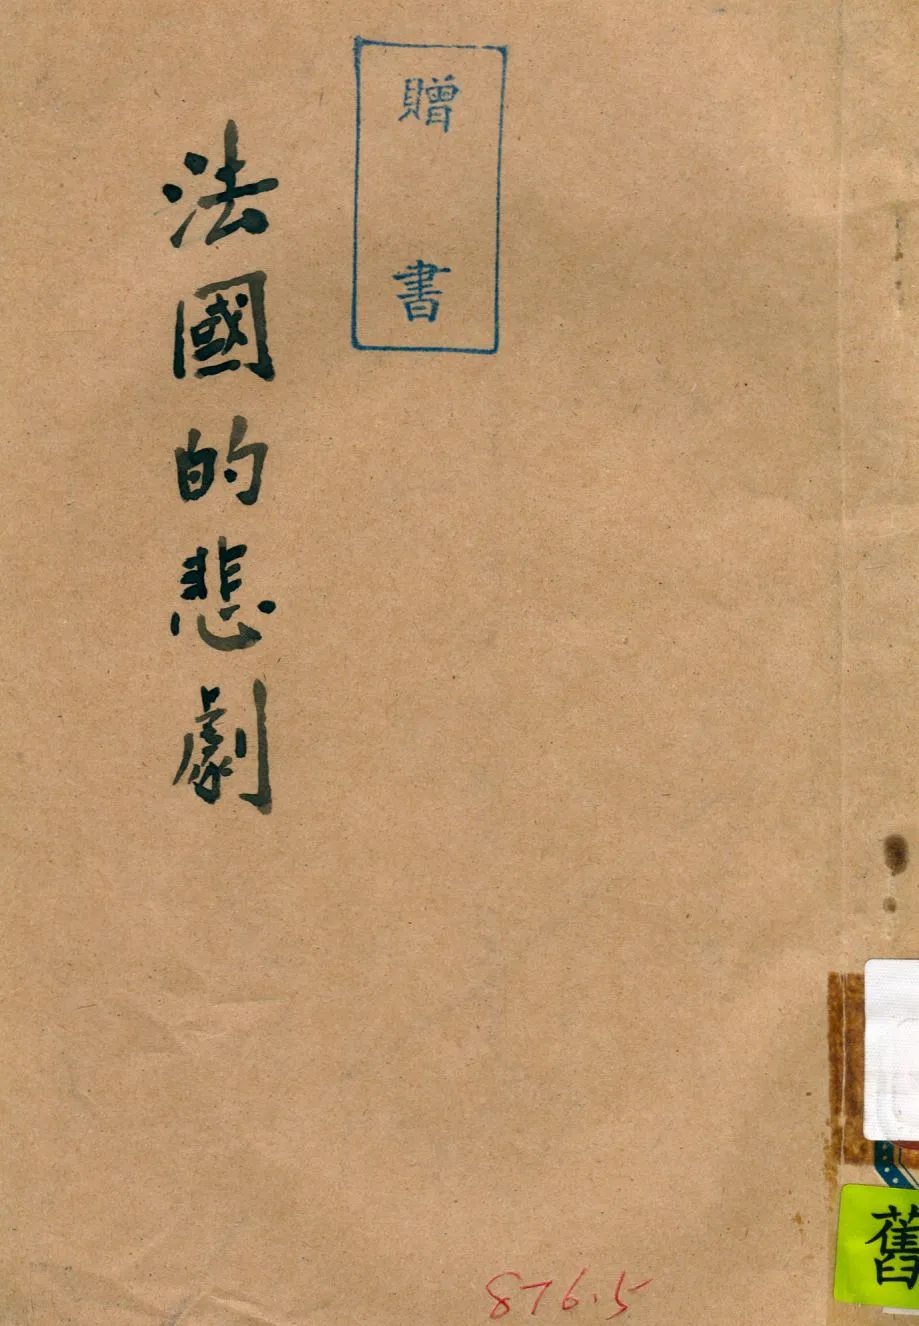 贈書
法國的悲劇
876.5
舊